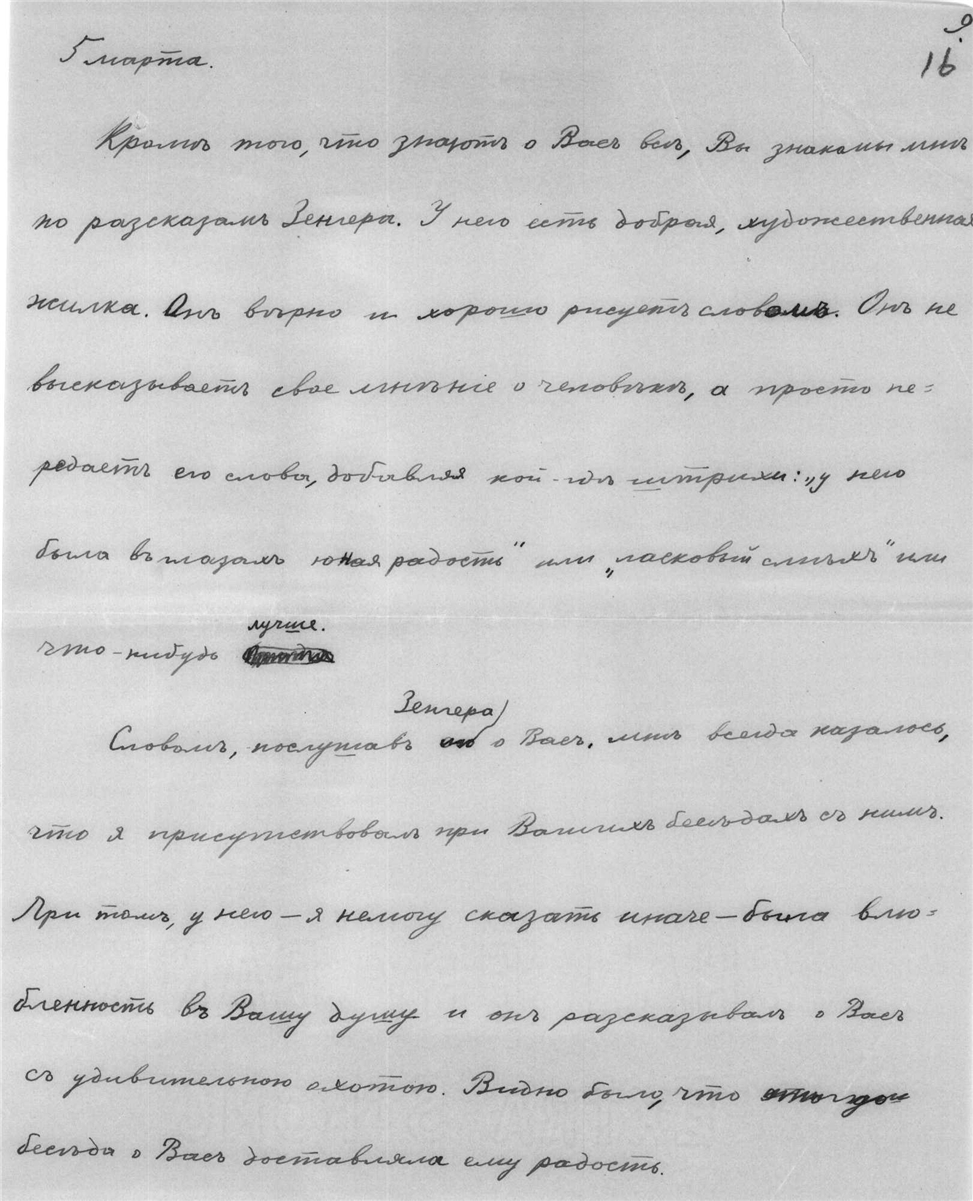 9.
16
5 марта.
Кромѣ того, что знаютъ о Васъ всѣ, Вы знакомы мнѣ
по разсказамъ Зенгера. У него есть добрая, художественная
жилка. Онъ вѣрно и хорошо рисуетъ словомъ. Онъ не
высказываетъ свое мнѣніе о человѣкѣ, а просто пе=
редаетъ его слова, добавляя кой-гдѣ штрихи: „у него
была въ глазахъ юная радость“ или „ласковый смѣхъ“ или
лучше.
что-нибудь
Зенгера
Словомъ, послушавъ о Васъ, мнѣ всегда казалось,
что я присутствовалъ при Вашихъ бесѣдахъ съ нимъ.
При томъ, у него – я не могу сказать иначе – была влю=
бленность въ Вашу душу и онъ разсказывалъ о Васъ
съ удивительною охотою. Видно было, что
бесѣда о Васъ доставляла ему радость.